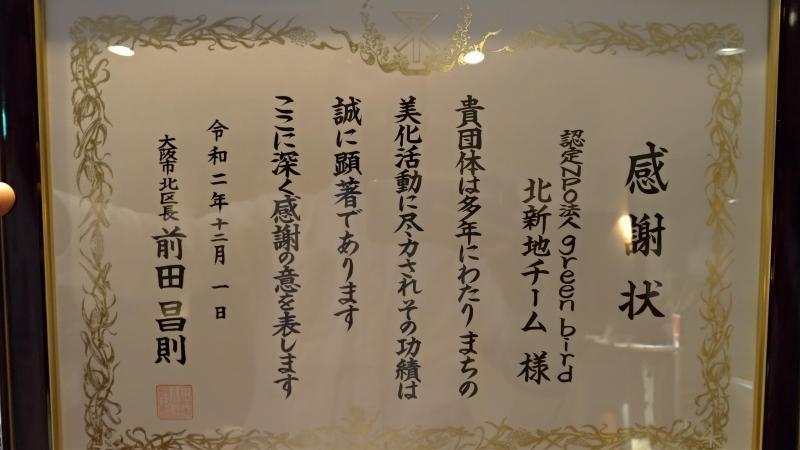 感謝状
認定NPO法人green bird
北新地チーム 様
貴団体は多年にわたりまちの
美化活動に尽力されその功績は
誠に顕著であります
ここに深く感謝の意を表します
令和二年十二月一日
大阪市北区長 前田昌則